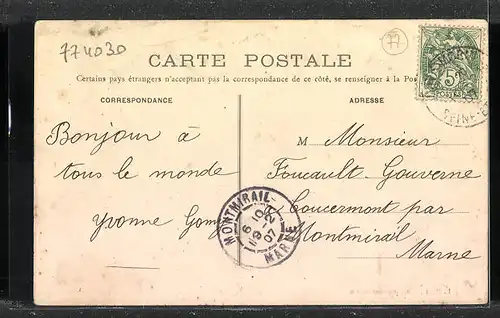 774030
77
CARTE POSTALE
Certains pays étrangers n'acceptant pas la correspondance de ce côté, se renseigner à la Pos
CORRESPONDANCE
ADRESSE
Bonjour à
tous le monde
Yvonne
M Monsieur
Foucault-Gouverne
Coucermont par
Montmirail
Marne
MONTMIRAIL
6-10
19-2
07
MARNE
5